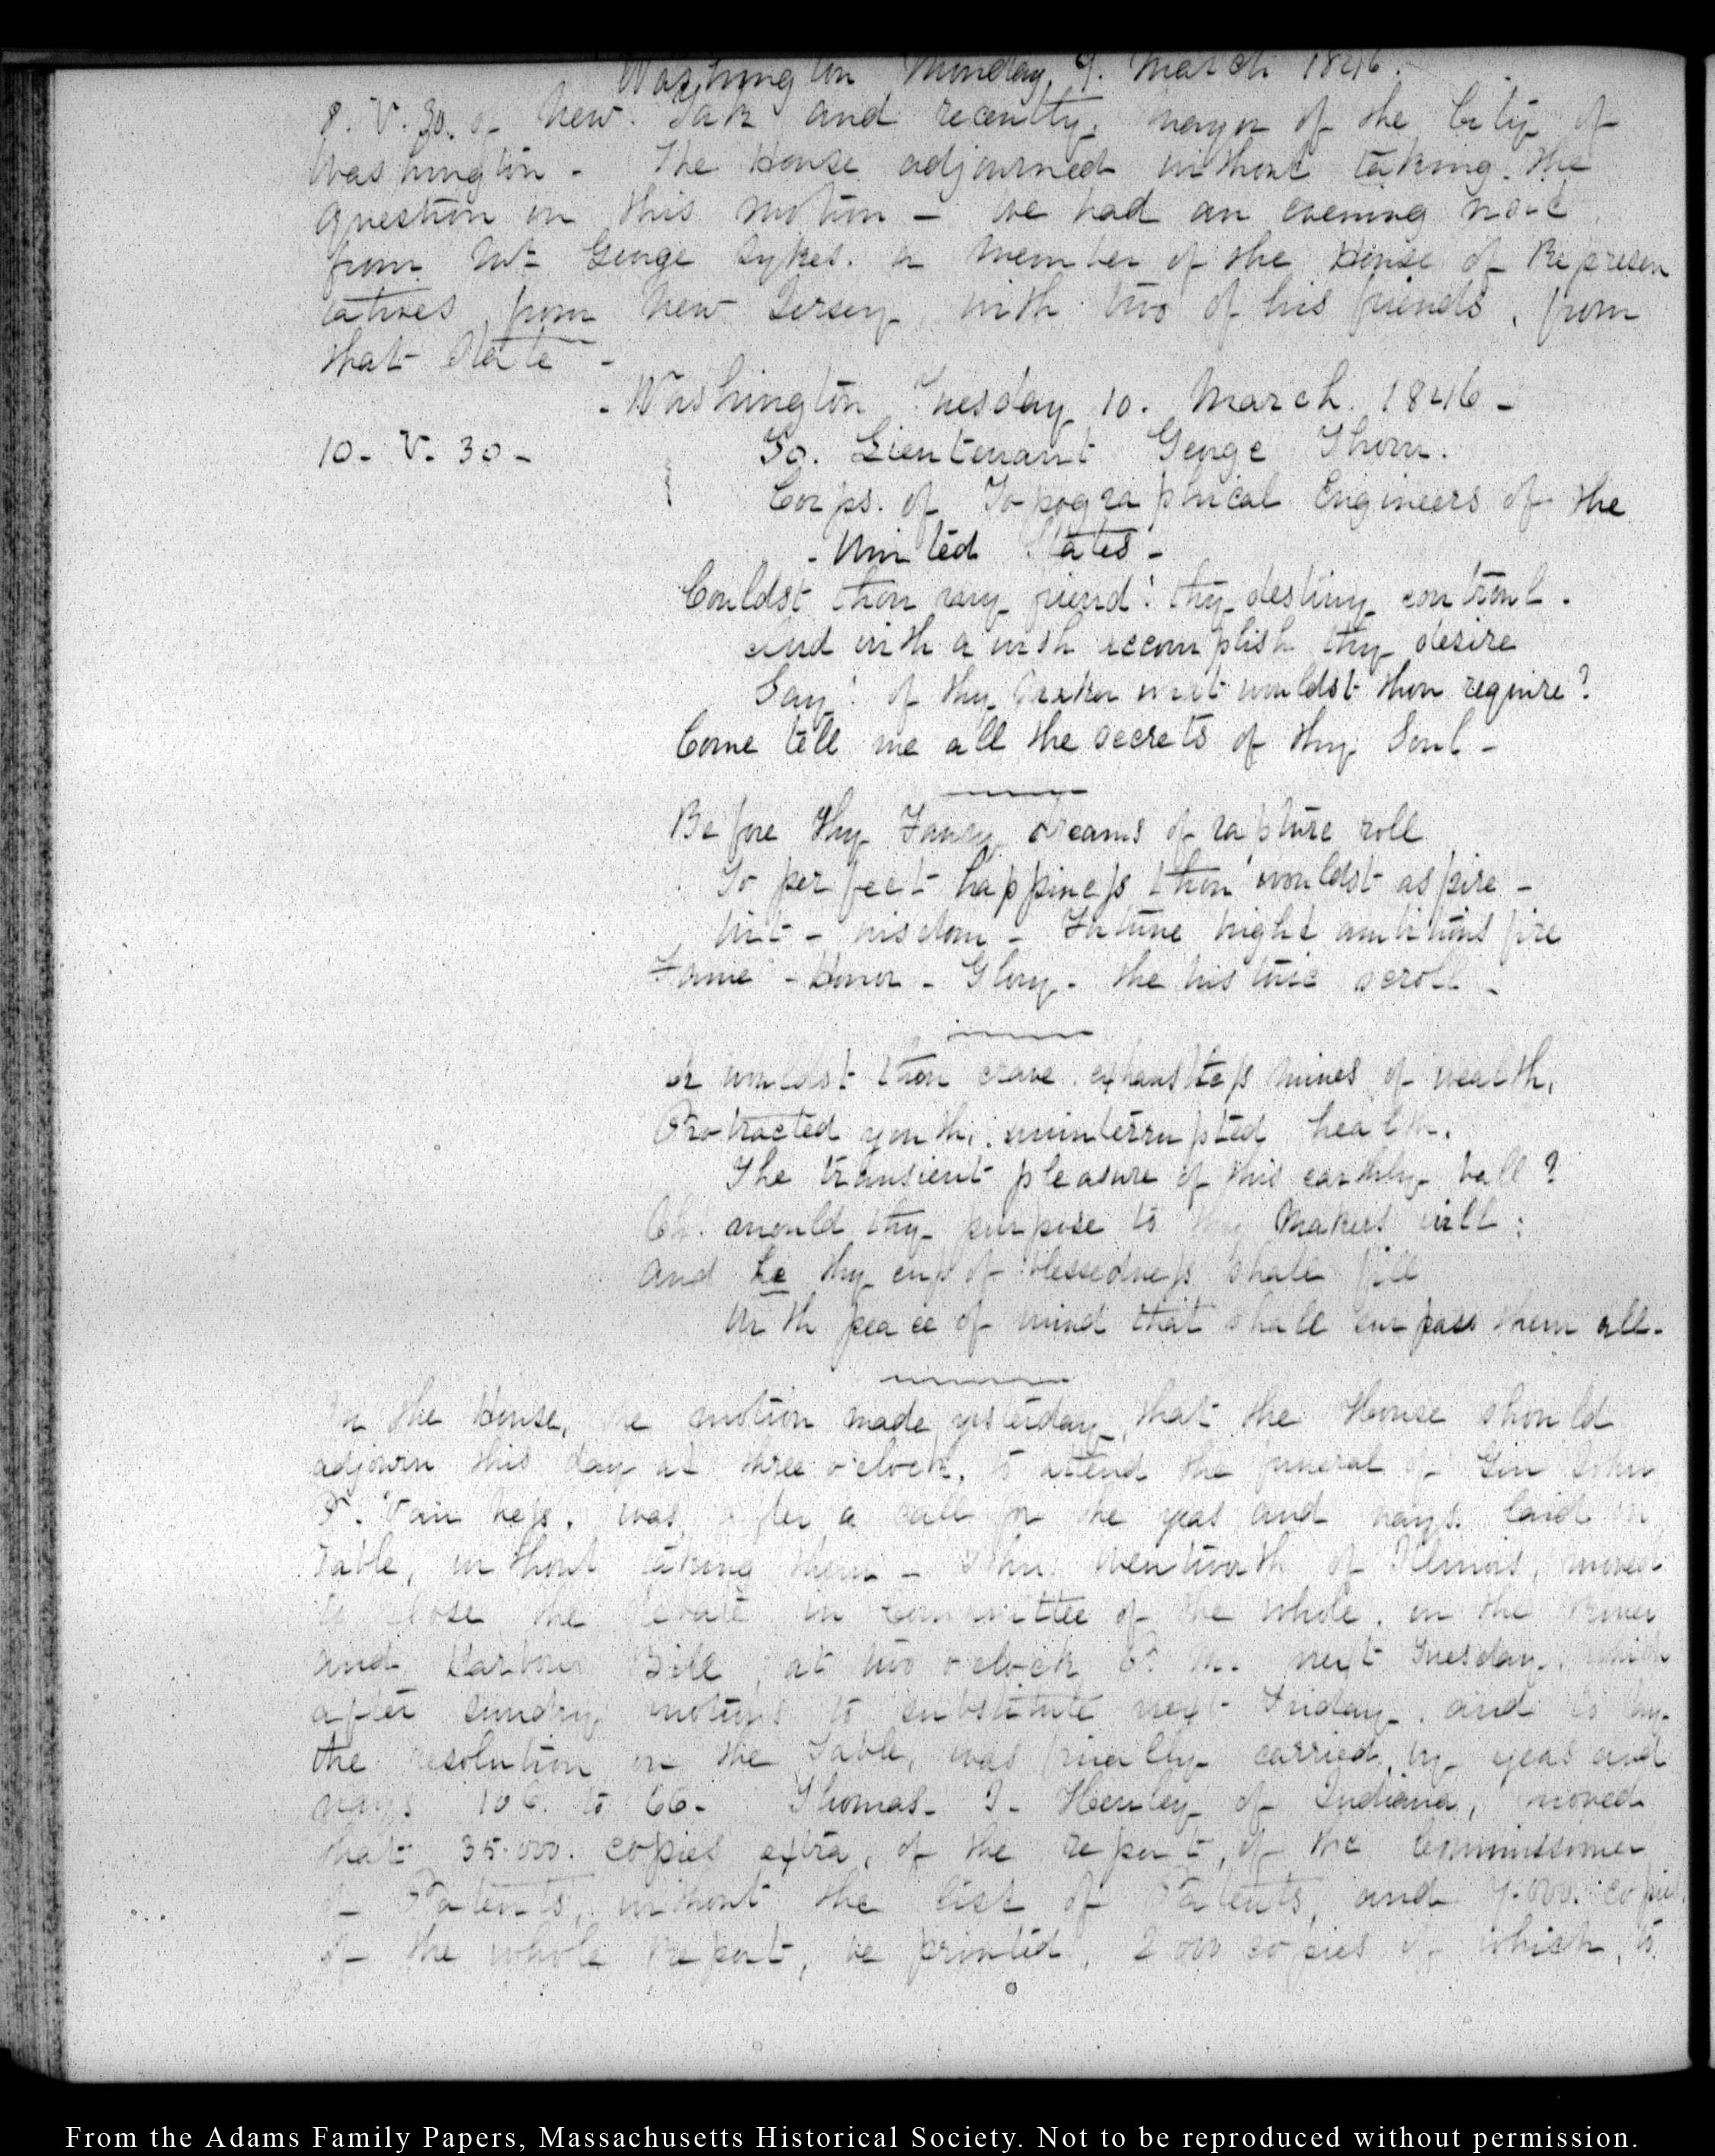 Washington Monday, 9. March 1846.
8. V. 30. of New York and recently, mayor of the City of
Washington - The House adjourned without taking the
question on this motion - We had an evening visit
from Mr George Sykes. a member of the House of Represen
tatives from New Jersey with two of his friends, from
that State -
- Washington Tuesday 10. March. 1846 -
10. V. 30 - To. Lieutenant George Thom.
Corps. of Topographical Engineers of the
- United States -
Couldst thou my friend! thy destiny controul.
And with a wish accomplish thy desire
Say! of thy Maker what wouldst thou require?
Come tell me all the secrets of thy Soul -
Before thy Fancy dreams of rapture roll
To perfect happiness thou wouldst aspire -
Wit - wisdom - Fortune might ambitions fire
Fame - Honor - Glory - the historic scroll -
Or wouldst thou crave exhaustless mines of wealth,
Protracted youth, uninterrupted health,
The transient pleasure of this earthly ball?
Oh. mould thy purpose to thy Makers will:
And he thy cup of blessedness shall fill
With peace of mind that shall surpass them all.
In the House, the motion made yesterday, that the House should
adjourn this day at three o'clock, to attend the funeral of Gen John
P. Van Ness. was, after a call for the yeas and nays. laid on
Table, without taking them - John Wentworth of Illinois, moved
to close the debate in Committee of the whole, on the River
and Harbour Bill, at two o'clock P. M. next Tuesday, which
after sundry motions to substitute next Friday, and to lay
the resolution on the Table, was finally carried, by yeas and
nays 106. to 66. Thomas. J. Henley of Indiana, moved
that 35.000. copies extra, of the report, of the Commissioner
of Patents, without the list of Patents, and copies
of the whole Report, be printed, 2000 copies of which, to
From the Adams Family Papers, Massachusetts Historical Society. Not to be reproduced without permission.